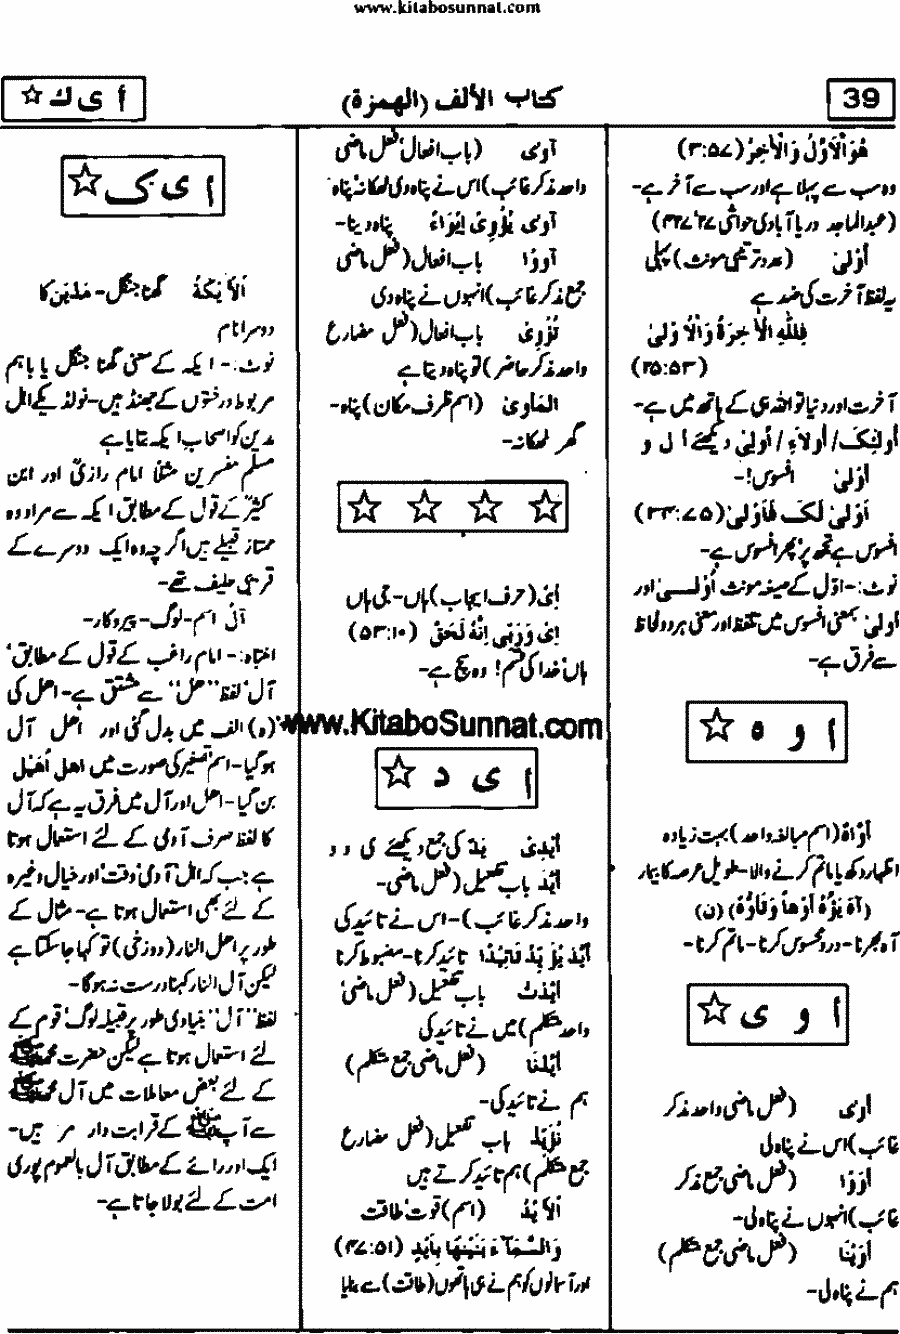 www.kitabosunnat.com
39
كتاب الألف (الهمزة)
أ ي ك ☆
هُوَ الْأَوَّلُ وَالْآخِرُ (۳:۵۷)
وہ سب سے پہلا ہے اور سب سے آخر ہے۔
(عبدالماجد دریا آبادی حواشی ۲۷،۴۲۷)
أُوْلىٰ (عدد ترتیبی مونث) پہلی
یہ لفظ آخرت کی ضد ہے
فَلِلّٰهِ الْآخِرَةُ وَالْأُوْلىٰ
(۲۵:۵۳)
آخرت اور دنیا تو اللہ ہی کے ہاتھ میں ہے۔
أولئک/ أولاءِ/ أولیٰ دیکھئے أ ل و
أوْلىٰ افسوس!۔
أَوْلىٰ لَکَ فَأَوْلىٰ (۳۴:۷۵)
افسوس ہے تجھ پر پھر افسوس ہے۔
نوٹ:۔ اوّل کے صیغہ مونث أُوْلىٰ اور
أولىٰ بمعنی افسوس میں تلفظ اور معنی ہر دو لحاظ
سے فرق ہے۔
ا و ہ ☆
أَوَّاهٌ (اسم مبالغہ واحد) بہت زیادہ
اظہار دکھ یا ماتم کرنے والا۔ طویل عرصہ کا بیمار
(آهَ يَؤُهُ أَوْهاً وَتَأَوَّهَ) (ن)
آہ بھرنا۔ درد محسوس کرنا۔ ماتم کرنا۔
ا و ی ☆
أَوىٰ (فعل ماضی واحد مذکر
غائب) اس نے پناہ لی
أَوَوْا (فعل ماضی جمع مذکر
غائب) انہوں نے پناہ لی۔
أَوَيْنَا (فعل ماضی جمع متکلم)
ہم نے پناہ لی۔
آوىٰ (باب افعال، فعل ماضی
واحد مذکر غائب) اس نے پناہ دی ٹھکانہ، پناہ
آوىٰ يُؤْوِىْ اِيْوَاءً پناہ دینا۔
آوَوْا باب افعال (فعل ماضی
جمع مذکر غائب) انہوں نے پناہ دی
تُؤْوِىْ باب افعال (فعل مضارع
واحد مذکر حاضر) تو پناہ دیتا ہے
المأوىٰ (اسم ظرف مکان) پناہ۔
گھر ٹھکانہ۔
☆ ☆ ☆ ☆
إِىْ (حرف ایجاب) ہاں۔ جی ہاں
اِىْ وَرَبِّىْ اِنَّهُ لَحَقٌّ (۵۳:۱۰)
ہاں خدا کی قسم! وہ سچ ہے۔
www.KitaboSunnat.com
ا ی د ☆
أَيْدِىْ يَدٌ کی جمع دیکھئے ی د و
أَيَّدَ باب تفعیل (فعل ماضی۔
واحد مذکر غائب)۔ اس نے تائید کی
أَيَّدَ يُؤَيِّدُ تَأيِيْدًا تائید کرنا۔ مضبوط کرنا
أَيَّدْتُ باب تفعیل (فعل ماضی
واحد متکلم) میں نے تائید کی
أَيَّدْنَا (فعل ماضی جمع متکلم)
ہم نے تائید کی۔
نُؤَيِّدُ باب تفعیل (فعل مضارع
جمع متکلم) ہم تائید کرتے ہیں
اَلْأَيْدُ (اسم) قوت، طاقت
وَالسَّمَآءَ بَنَيْنٰهَا بِأَيْدٍ (۴۷:۵۱)
اور آسمانوں کو ہم نے ہی ہاتھوں (طاقت) سے بنایا
ا ی ک ☆
اَلْأَيْكَةُ گھنا جنگل۔ مَدْيَن کا
دوسرا نام
نوٹ:۔ ایکہ کے معنی گھنا جنگل یا باہم
مربوط درختوں کے جھنڈ ہیں۔ نولڈیکے اہل
مدین کو اصحاب ایکہ بتایا ہے
مسلم مفسرین مثلاً امام رازیؒ اور ابن
کثیرؒ کے قول کے مطابق ایکہ سے مراد وہ
ممتاز قبیلے ہیں اگرچہ وہ ایک دوسرے کے
قریبی حلیف تھے۔
آلُ اسم۔ لوگ۔ پیروکار۔
انتباہ:۔ امام راغب کے قول کے مطابق،
آل، لفظ "اھل" سے مشتق ہے۔ اھل کی
(ہ) الف میں بدل گئی اور اھل آل
ہو گیا۔ اسم تصغیر کی صورت میں اھل اُھَیل
بن گیا۔ اھل اور آل میں فرق یہ ہے کہ آل
کا لفظ صرف آدمی کے لئے استعمال ہوتا
ہے جب کہ اہل آدمی، وقت، اور خیال وغیرہ
کے لئے بھی استعمال ہوتا ہے۔ مثال کے
طور پر اھل النار (دوزخی) تو کہا جا سکتا ہے
لیکن آل النار کہنا درست نہ ہو گا۔
لفظ "آل" بنیادی طور پر قبیلہ لوگ، قوم کے
لئے استعمال ہوتا ہے لیکن حضرت محمدﷺ
کے لئے بعض معاملات میں آل محمدﷺ
سے آپﷺ کے قرابت دار مر ہیں۔
ایک اور رائے کے مطابق آل بالعموم پوری
امت کے لئے بولا جاتا ہے۔